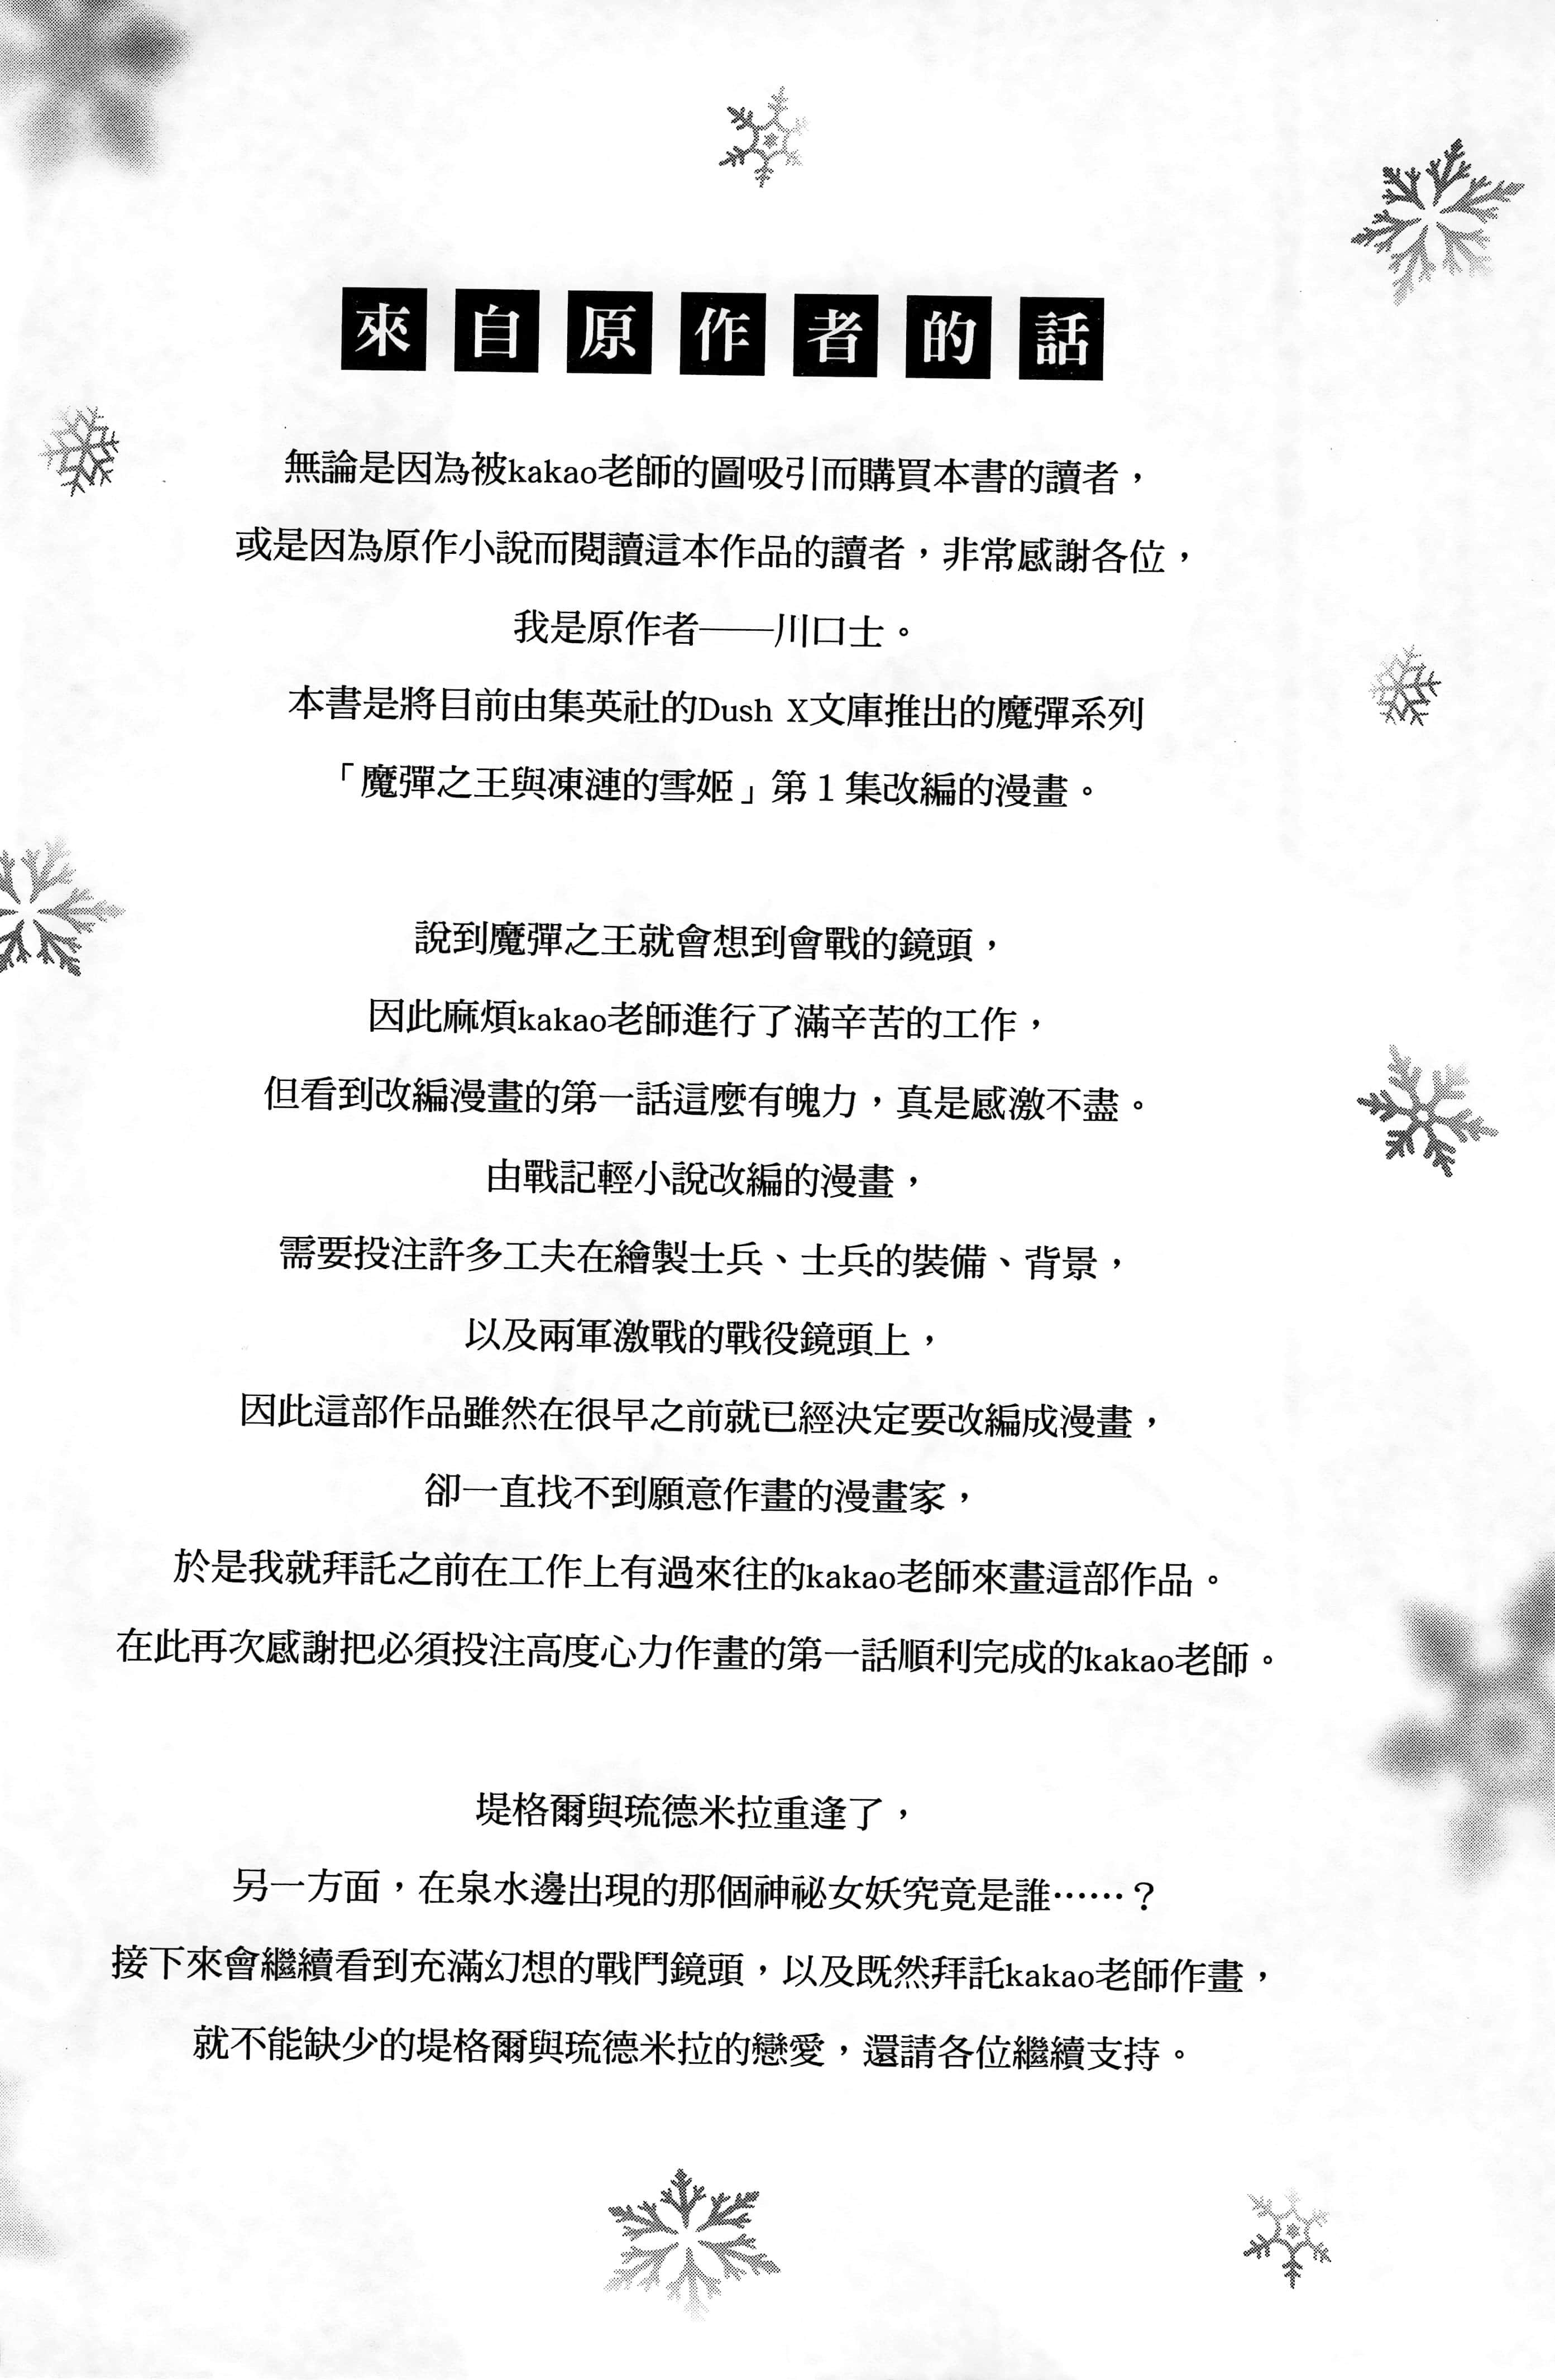 來自原作者的話
無論是因為被kakao老師的圖吸引而購買本書的讀者，
或是因為原作小說而閱讀這本作品的讀者，非常感謝各位，
我是原作者——川口士。
本書是將目前由集英社的Dush X文庫推出的魔彈系列
「魔彈之王與凍漣的雪姬」第1集改編的漫畫。
說到魔彈之王就會想到會戰的鏡頭，
因此麻煩kakao老師進行了滿辛苦的工作，
但看到改編漫畫的第一話這麼有魄力，真是感激不盡。
由戰記輕小說改編的漫畫，
需要投注許多工夫在繪製士兵、士兵的裝備、背景，
以及兩軍激戰的戰役鏡頭上，
因此這部作品雖然在很早之前就已經決定要改編成漫畫，
卻一直找不到願意作畫的漫畫家，
於是我就拜託之前在工作上有過來往的kakao老師來畫這部作品。
在此再次感謝把必須投注高度心力作畫的第一話順利完成的kakao老師。
堤格爾與琉德米拉重逢了，
另一方面，在泉水邊出現的那個神祕女妖究竟是誰……？
接下來會繼續看到充滿幻想的戰鬥鏡頭，以及既然拜託kakao老師作畫，
就不能缺少的堤格爾與琉德米拉的戀愛，還請各位繼續支持。